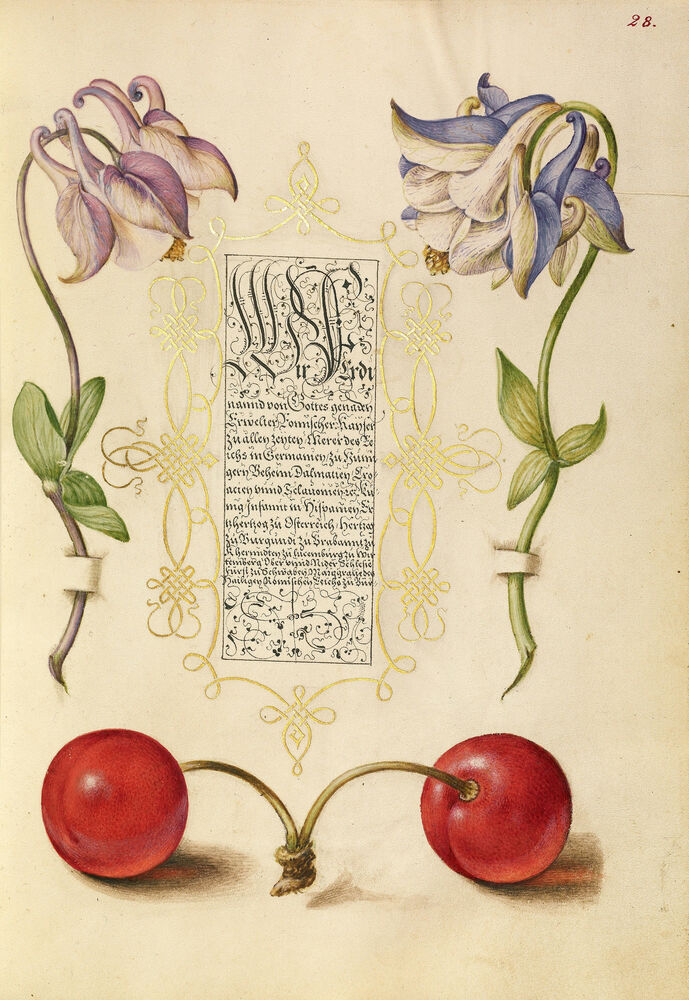 28.
Wir Ferdi
nannd von Gottes genaden
Erwelter Romischer Kayser
zu allen zeyten Merer des Re
ichs in Germanien, zu Hung
gern Beheim Dalmatien Cro-
acien vnnd Sclauonien, zc. Ku-
nig Infannt in Hispanien Er
tzhertzog zu Osterreich Hertzog
zu Burgundi zu Brabannt zu
Khernndten zu Lucemburg zu Wir
temberg Ober vnnd Nider Schlesien
Furst zu Schwaben Marggraue des
Hailigen Romischen Reichs zu Bur-